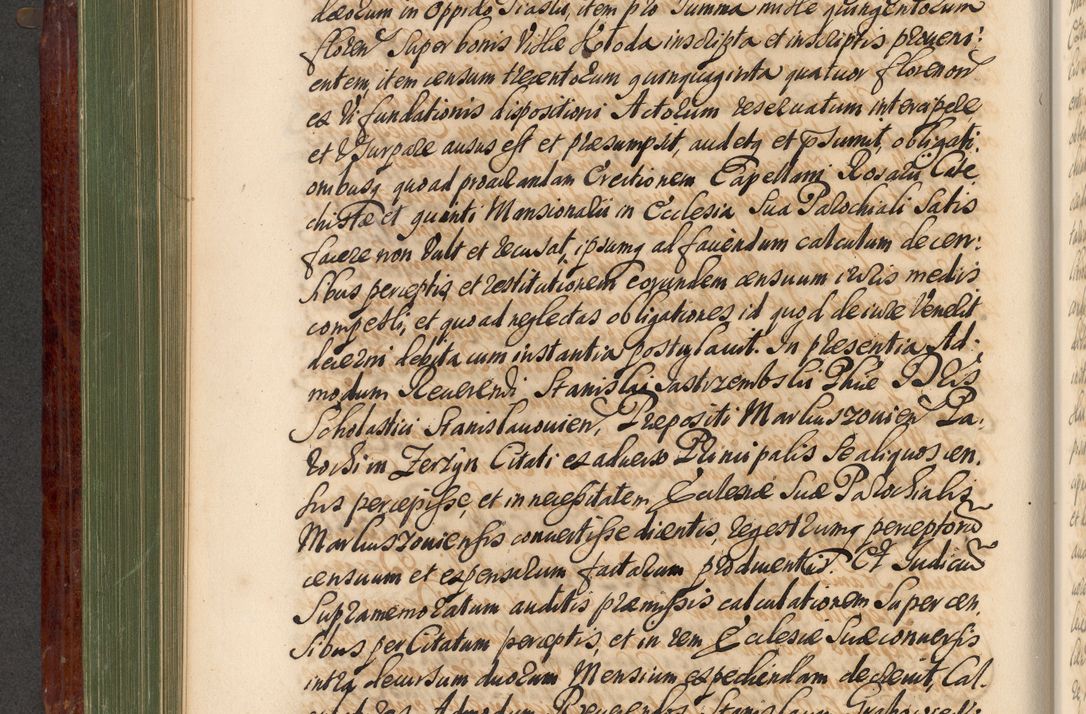 deorum in Oppido Siastu, item pro Summa mille quingentorum
floren Super bonis Villæ Kłoda inscripta et inscriptis proveni:
entem, item censum trecentorum quinquaginta quatuor florenorũ
ex Vi fundationis dispositioni Actorum reservatum intercipere
et Vsurpare ausus est et præsumpsit, audetq et præsumit, obligati:
onibusq quoad procurandam Erectionem Capellani Rosarii Cate
chistæ et quinti Mansionarii in Ecclesia Sua Parochiali Satis
facere non Vult et recusat, ipsumq ad faciendum calculum de cen:
sibus perceptis et restitutionem eorundem censuum iuris mediis
compelli, et quoad neglectas obligationes id quod de iure Venerit
decerni debita cum instantia postulavit. In præsentia Ad:
modum Reverendi Stanislai Jastrzembskii Phiæ Dris
Scholastici Stanislavovien, Præpositi Markuszovien Pa:
rochi in Zerzyn Citati ex adverso Principalis Se aliquos cen:
sus percepisse, et in necessitatem Ecclesiæ Suæ Parochialis
Markuszoviensis convertisse dicentis, regestrumq perceptorũ
censuum et expensarum factarum producentis. Et Iudiciũ
Supramemoratum auditis præmissis calculationem Super cen:
sibus per Citatum perceptis, et in rem Ecclesiæ Suæ conversis
intra decursum duorum Mensium expediendam decrevit, Cal:
Admodum Reverendos Stanislaum